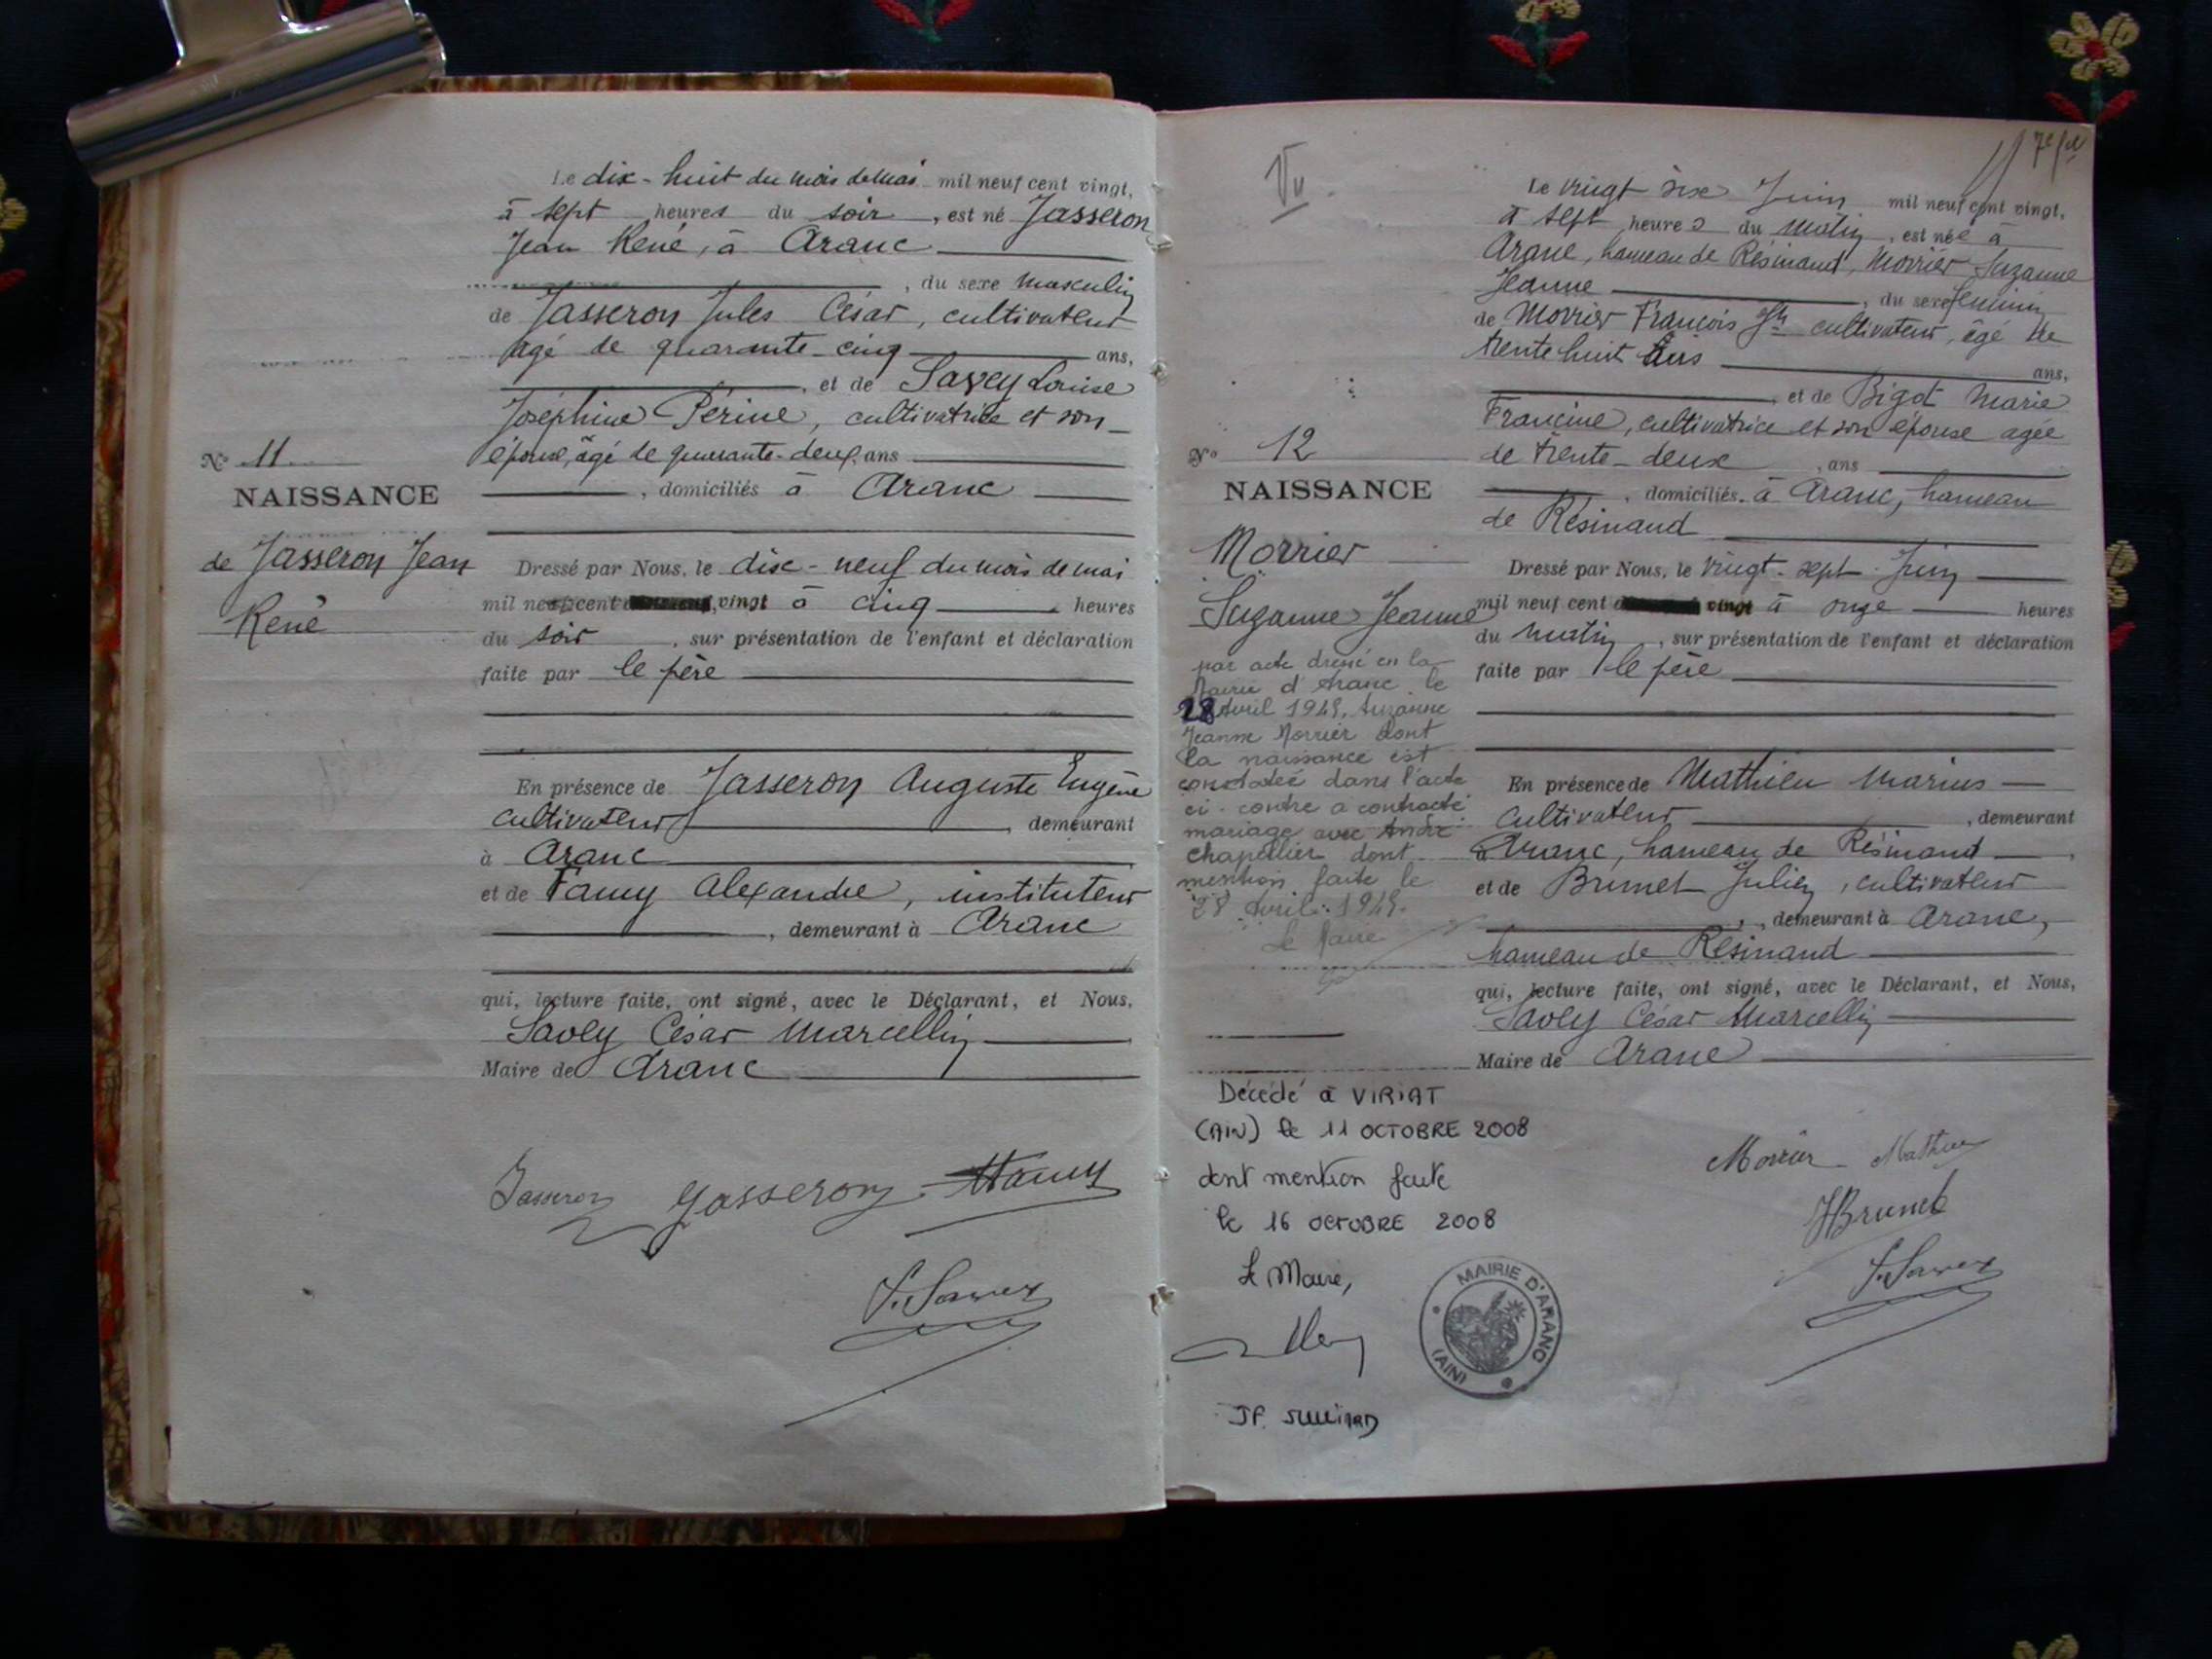 Le dix-huit du mois de Mai mil neuf cent vingt,
à sept heures du soir, est né Jasseron
Jean René, à Aranc
, du sexe masculin
de Jasseron Jules César, cultivateur
agé de quarante-cinq ans,
, et de Savey Louise
Joséphine Périne, cultivatrice et son
épouse, âgé de quarante-deux ans
, domiciliés à Aranc
No 11
NAISSANCE
de Jasseron Jean
René
Dressé par Nous, le dix-neuf du mois de mai
mil neuf cent vingt à cinq heures
du soir, sur présentation de l'enfant et déclaration
faite par le père
En présence de Jasseron Auguste Eugène
cultivateur, demeurant
à Aranc
et de Famy Alexandre, instituteur
, demeurant à Aranc
qui, lecture faite, ont signé, avec le Déclarant, et Nous,
Savey César Marcellin
Maire de Aranc
Jasseron Jasseron Famy
Vu
Le vingt six Juin mil neuf cent vingt,
à sept heures du matin, est née à
Aranc, hameau de Résinand, Morrier Suzanne
Jeanne, du sexe féminin
de Morrier François cultivateur, âgé de
trente huit ans ans,
, et de Bigot Marie
Francine, cultivatrice et son épouse agée
de trente-deux, ans
, domiciliés à Aranc, hameau
de Résinand
No 12
NAISSANCE
Morrier
Suzanne Jeanne
par acte dressé en la
Mairie d'Aranc le
28 Avril 1945, Suzanne
Jeanne Morrier dont
la naissance est
constatée dans l'acte
ci-contre a contracté
mariage avec André
Chapellier dont
mention faite le
28 Avril 1945.
Le Maire
Dressé par Nous, le vingt-sept Juin
mil neuf cent vingt à onze heures
du matin, sur présentation de l'enfant et déclaration
faite par le père
En présence de Mathieu Marius
cultivateur, demeurant
à Aranc, hameau de Résinand,
et de Brunet Julien, cultivateur
, demeurant à Aranc,
hameau de Résinand
qui, lecture faite, ont signé, avec le Déclarant, et Nous,
Savey César Marcellin
Maire de Aranc
Décédé à VIRIAT
(AIN) le 11 OCTOBRE 2008
dont mention faite
le 16 OCTOBRE 2008
Le Maire,
MAIRIE D'ARANC
(AIN)
Morrier Mathieu
JBrunet